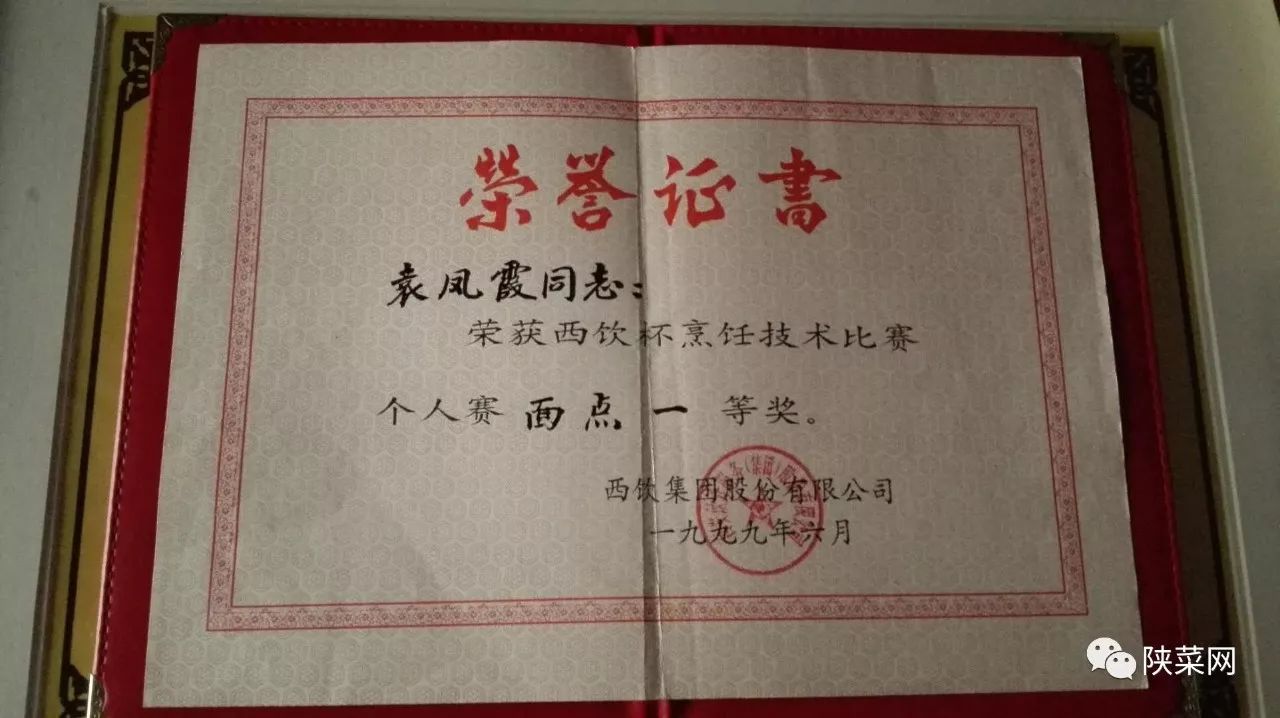 榮誉证書
袁凤霞同志:
荣获西饮杯烹饪技术比赛
个人赛 面点 一 等奖。
西饮集团股份有限公司
一九九九年六月
陕菜网